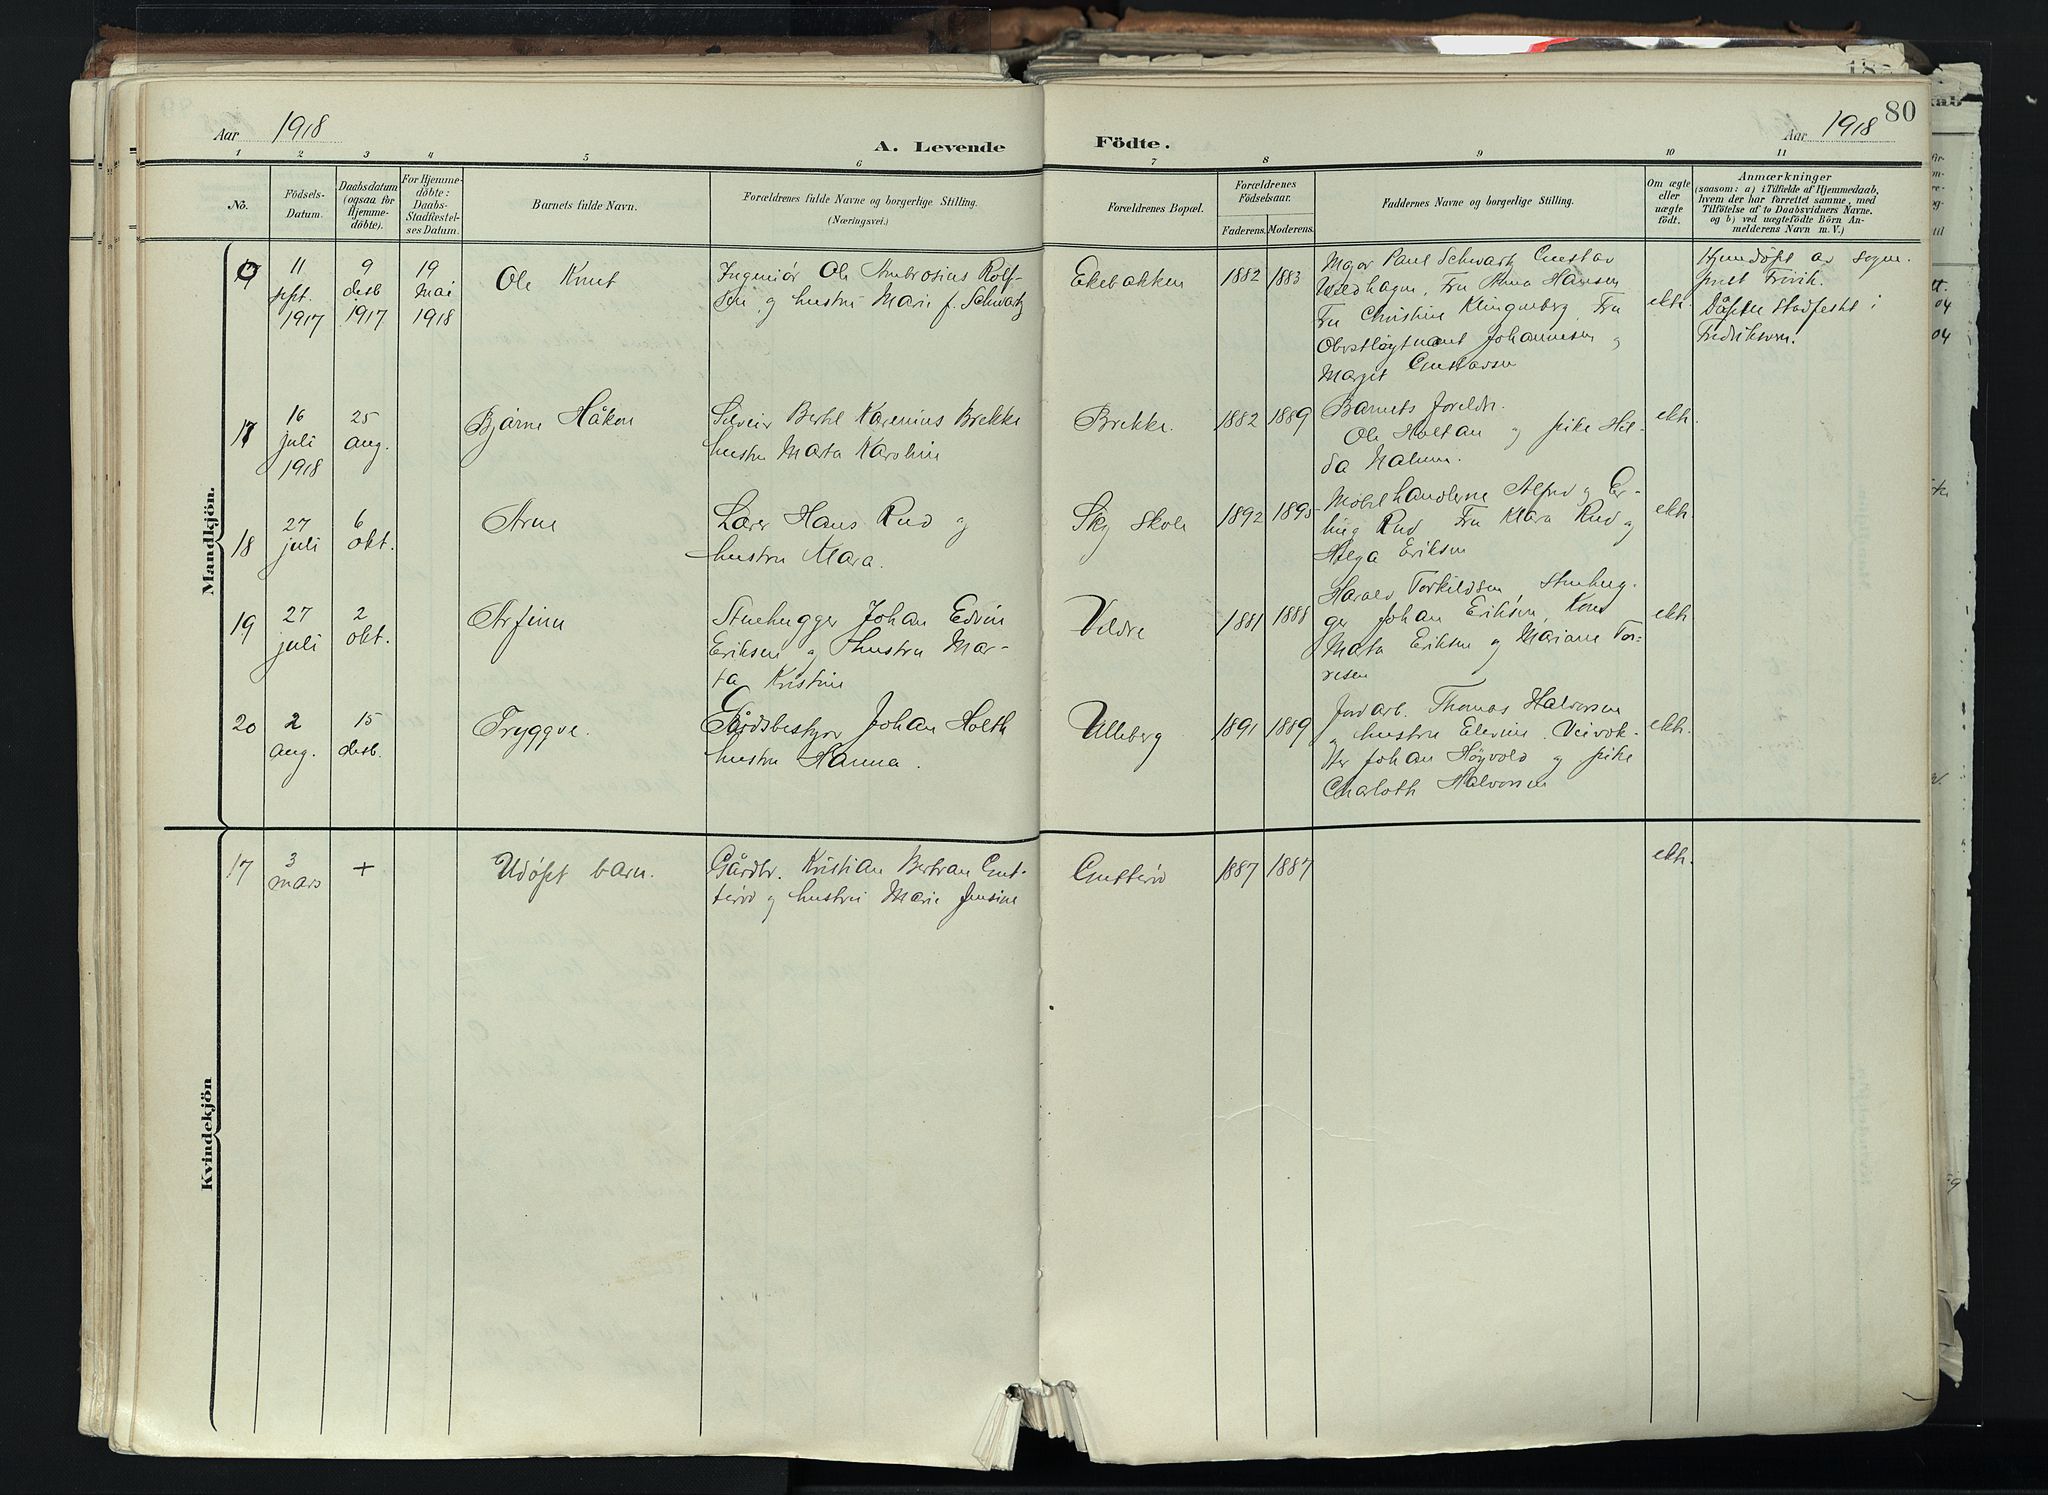 80
Aar 1918
A. Levende
Födte.
Aar 1918
1 2 3 4 5 6 7 8 9 10 11
No.
Födsels-
Datum.
Daabsdatum
(ogsaa for
Hjemme-
döbte).
For Hjemme-
döbte:
Daabs-
Stadfæstel-
ses Datum.
Barnets fulde Navn.
Forældrenes fulde Navne og borgerlige Stilling.
(Næringsvei.)
Forældrenes Bopæl.
Forældrenes
Födselsaar.
Faderens. Moderens.
Faddernes Navne og borgerlige Stilling.
Om ægte
eller
uægte
födt.
Anmærkninger
(saasom: a) i Tilfælde af Hjemmedaab,
hvem der har forrettet samme, med
Tilföielse af to Daabsvidners Navne.
og b) ved uægtefödte Börn An-
melderens Navn m. V.)
Mandkjön.
11
sept.
1917
9
desb
1917
19
mai
1918
Ole Knut
Ingeniör Ole Ambrosius Rolf-
sen og hustru Marie f. Schwartz
Ekebakken
1882
1883
Major Paul Schwartz Gustav
Wedhagen, Fru Anna Hansen
Fru Christine Klingenberg, Fru
Oberstlöytnant Johannesen og
Margit Gustavsen
ekte
Hjemdöpt av sogne-
prest
Dåpen stadfestet i
Fredriksvern.
17
16
juli
1918
25
aug.
Bjarne Håkon
Bertel Karenius Brekke
hustru Marta Karoline
Brekke.
1882
1889
Barnets foreldre.
Ole Holtan og pike Hil-
da
ekte
18
27
juli
6
okt.
Arne
Lærer Hans Rud og
hustru Mara.
Sky skole
1892
1895
Möbelhandlerne Alfred og Er-
ling Rud Fru Klara Rud og
Helga Eriksen
ekte
19
27
juli
2
okt.
Arfinn
Stenhugger Johan Edvin
Eriksen og hustru Mar-
ta Kristine
Veldre
1881
1888
Harald Torkildsen, Stenhug-
ger Johan Eriksen, Kone
Marta Eriksen og Mariane Tor-
resen
ekte
20
2
aug.
15
desb.
Tryggve.
Gårdsbestyrer Johan Holth
hustru Hanna.
Ulleberg
1891
1889
Jordarb. Thomas Halvorsen
og hustru Elevine. Veivok-
ter Johan Höyvold og pike
Charloth Halvorsen
ekte
Kvindekjön
17
3
mars
+
Udöpt barn.
Gårdbr. Kristian Bertran Gus-
teröd og hustru Marie Jensine
Gusteröd
1887
1887
ekte